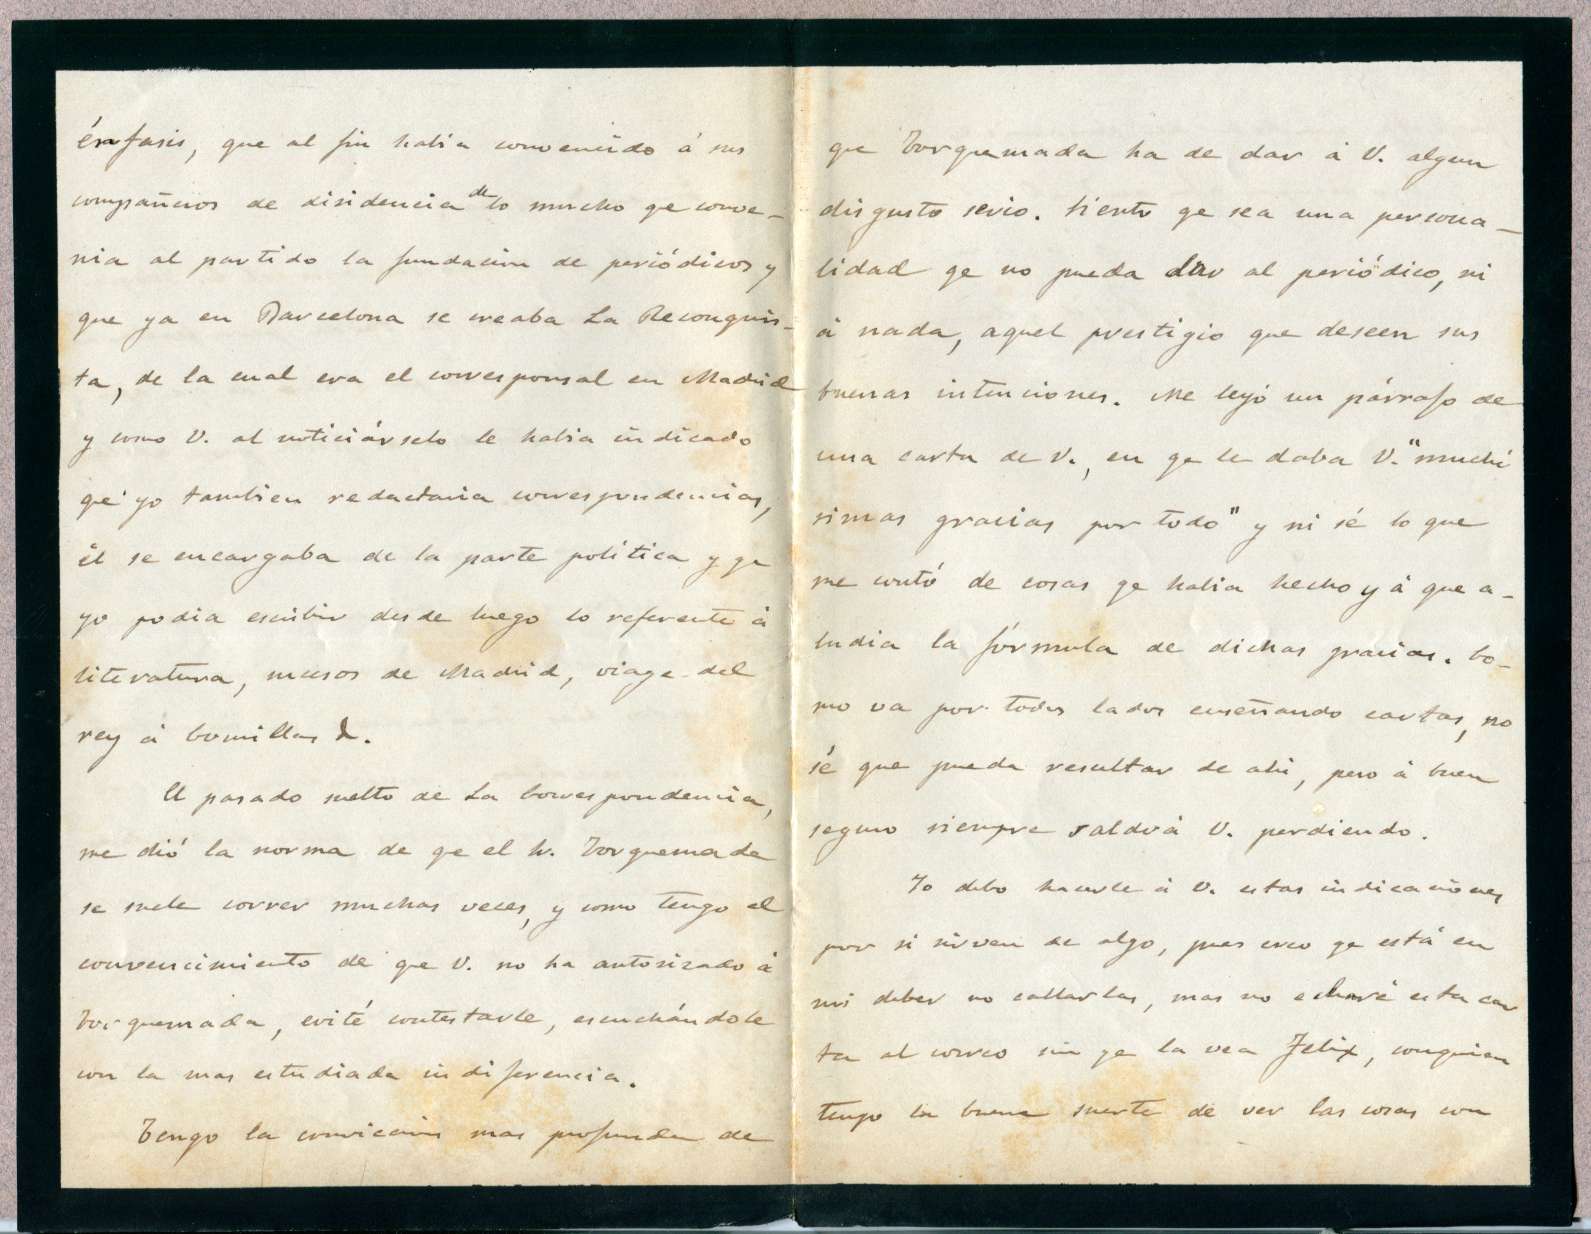 énfasis, que al fin habia convencido á sus
compañeros de disidencia de lo mucho qe conve-
nia al partido la fundacion de periódicos y
que ya en Barcelona se creaba La Reconquis-
ta, de la cual era el corresponsal en Madrid
y como V. al noticiárselo le habia indicado
qe yo tambien redactaria correspondencias,
él se encargaba de la parte politica y qe
yo podia escribir desde luego lo referente á
literatura, sucesos de Madrid, viage del
rey á Comillas &.
El pasado suelto de La Correspondencia,
me dió la norma de qe el Sr. Torquemada
se suele correr muchas veces, y como tengo el
convencimiento de qe V. no ha autorizado á
Torquemada, evité contestarle, escuchándole
con la mas estudiada indiferencia.
Tengo la conviccion mas profunda de
qe Torquemada ha de dar á V. algun
disgusto serio. Siento qe sea una persona-
lidad qe no pueda dar al periódico, ni
á nada, aquel prestigio que deseen sus
buenas intenciones. Me leyó un párrafo de
una carta de V., en qe le daba V. "muchi
simas gracias por todo" y ni sé lo que
me contó de cosas qe habia hecho y á que a-
ludia la fórmula de dichas gracias. Co-
mo va por todos lados enseñando cartas, no
sé que pueda resultar de ahi, pero á buen
seguro siempre saldrá V. perdiendo.
Yo debo hacerle á V. estas indicaciones
por si sirven de algo, pues creo qe está en
mi deber no callarlas, mas no echaré esta car
ta al correo sin qe la vea Felix, con quien
tengo la buena suerte de ver las cosas con